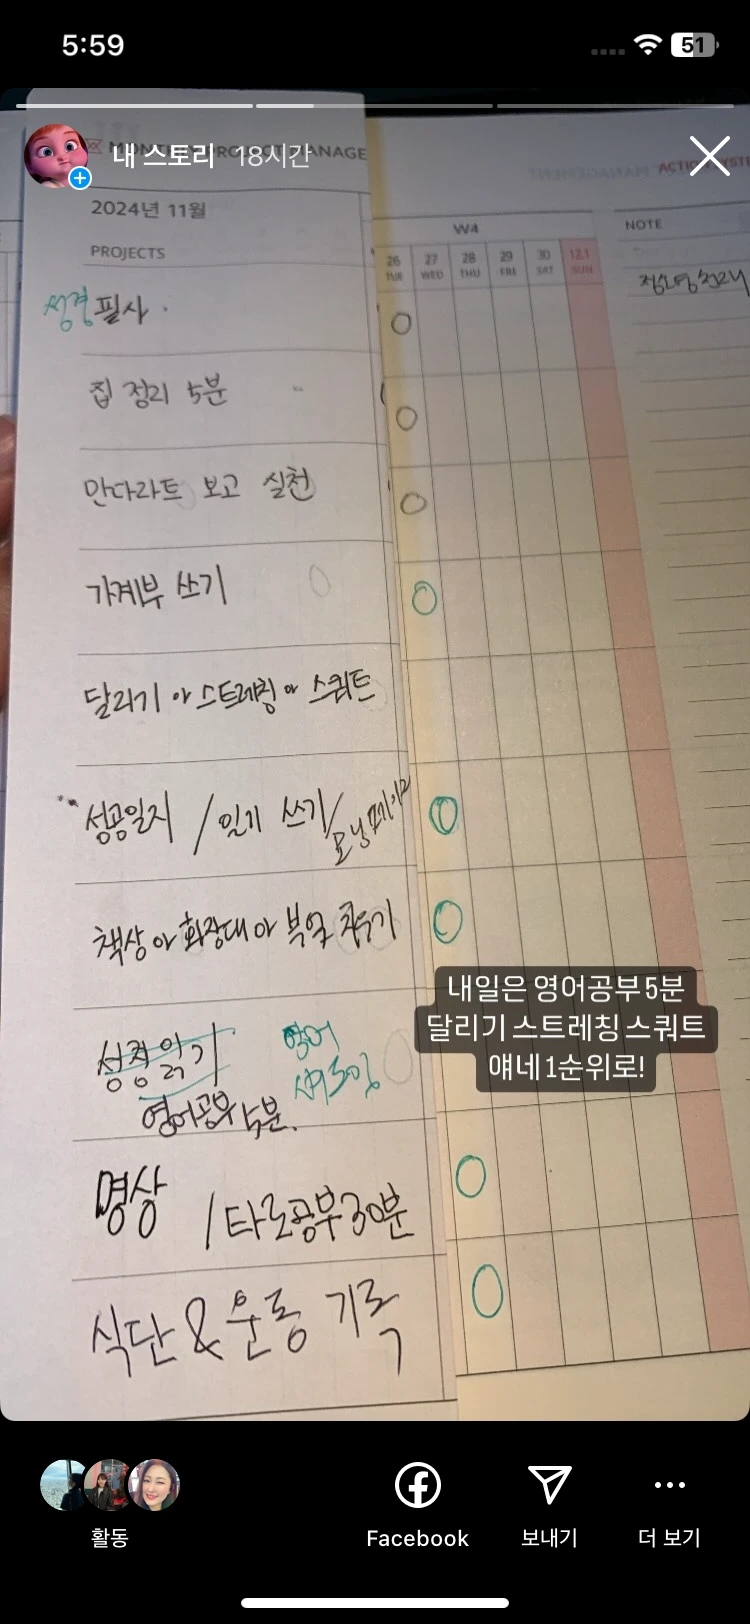 5:59
51
내 스토리 18시간
2024년 11월
PROJECTS
W4
NOTE
26 27 28 29 30 12.1
TUE WED THU FRI SAT SUN
성경필사
집 정리 5분
만다라트 보고 실천
가계부 쓰기
달리기 or 스트레칭 or 스쿼트
성공일지 / 일기 쓰기/
모닝페이지
책상 or 화장대 or 부엌
성경 읽기
영어
영어공부 5분.
명상 / 타로공부30분
식단 & 운동 기록
내일은 영어공부 5분
달리기 스트레칭 스쿼트
얘네 1순위로!
활동
Facebook
보내기
더 보기